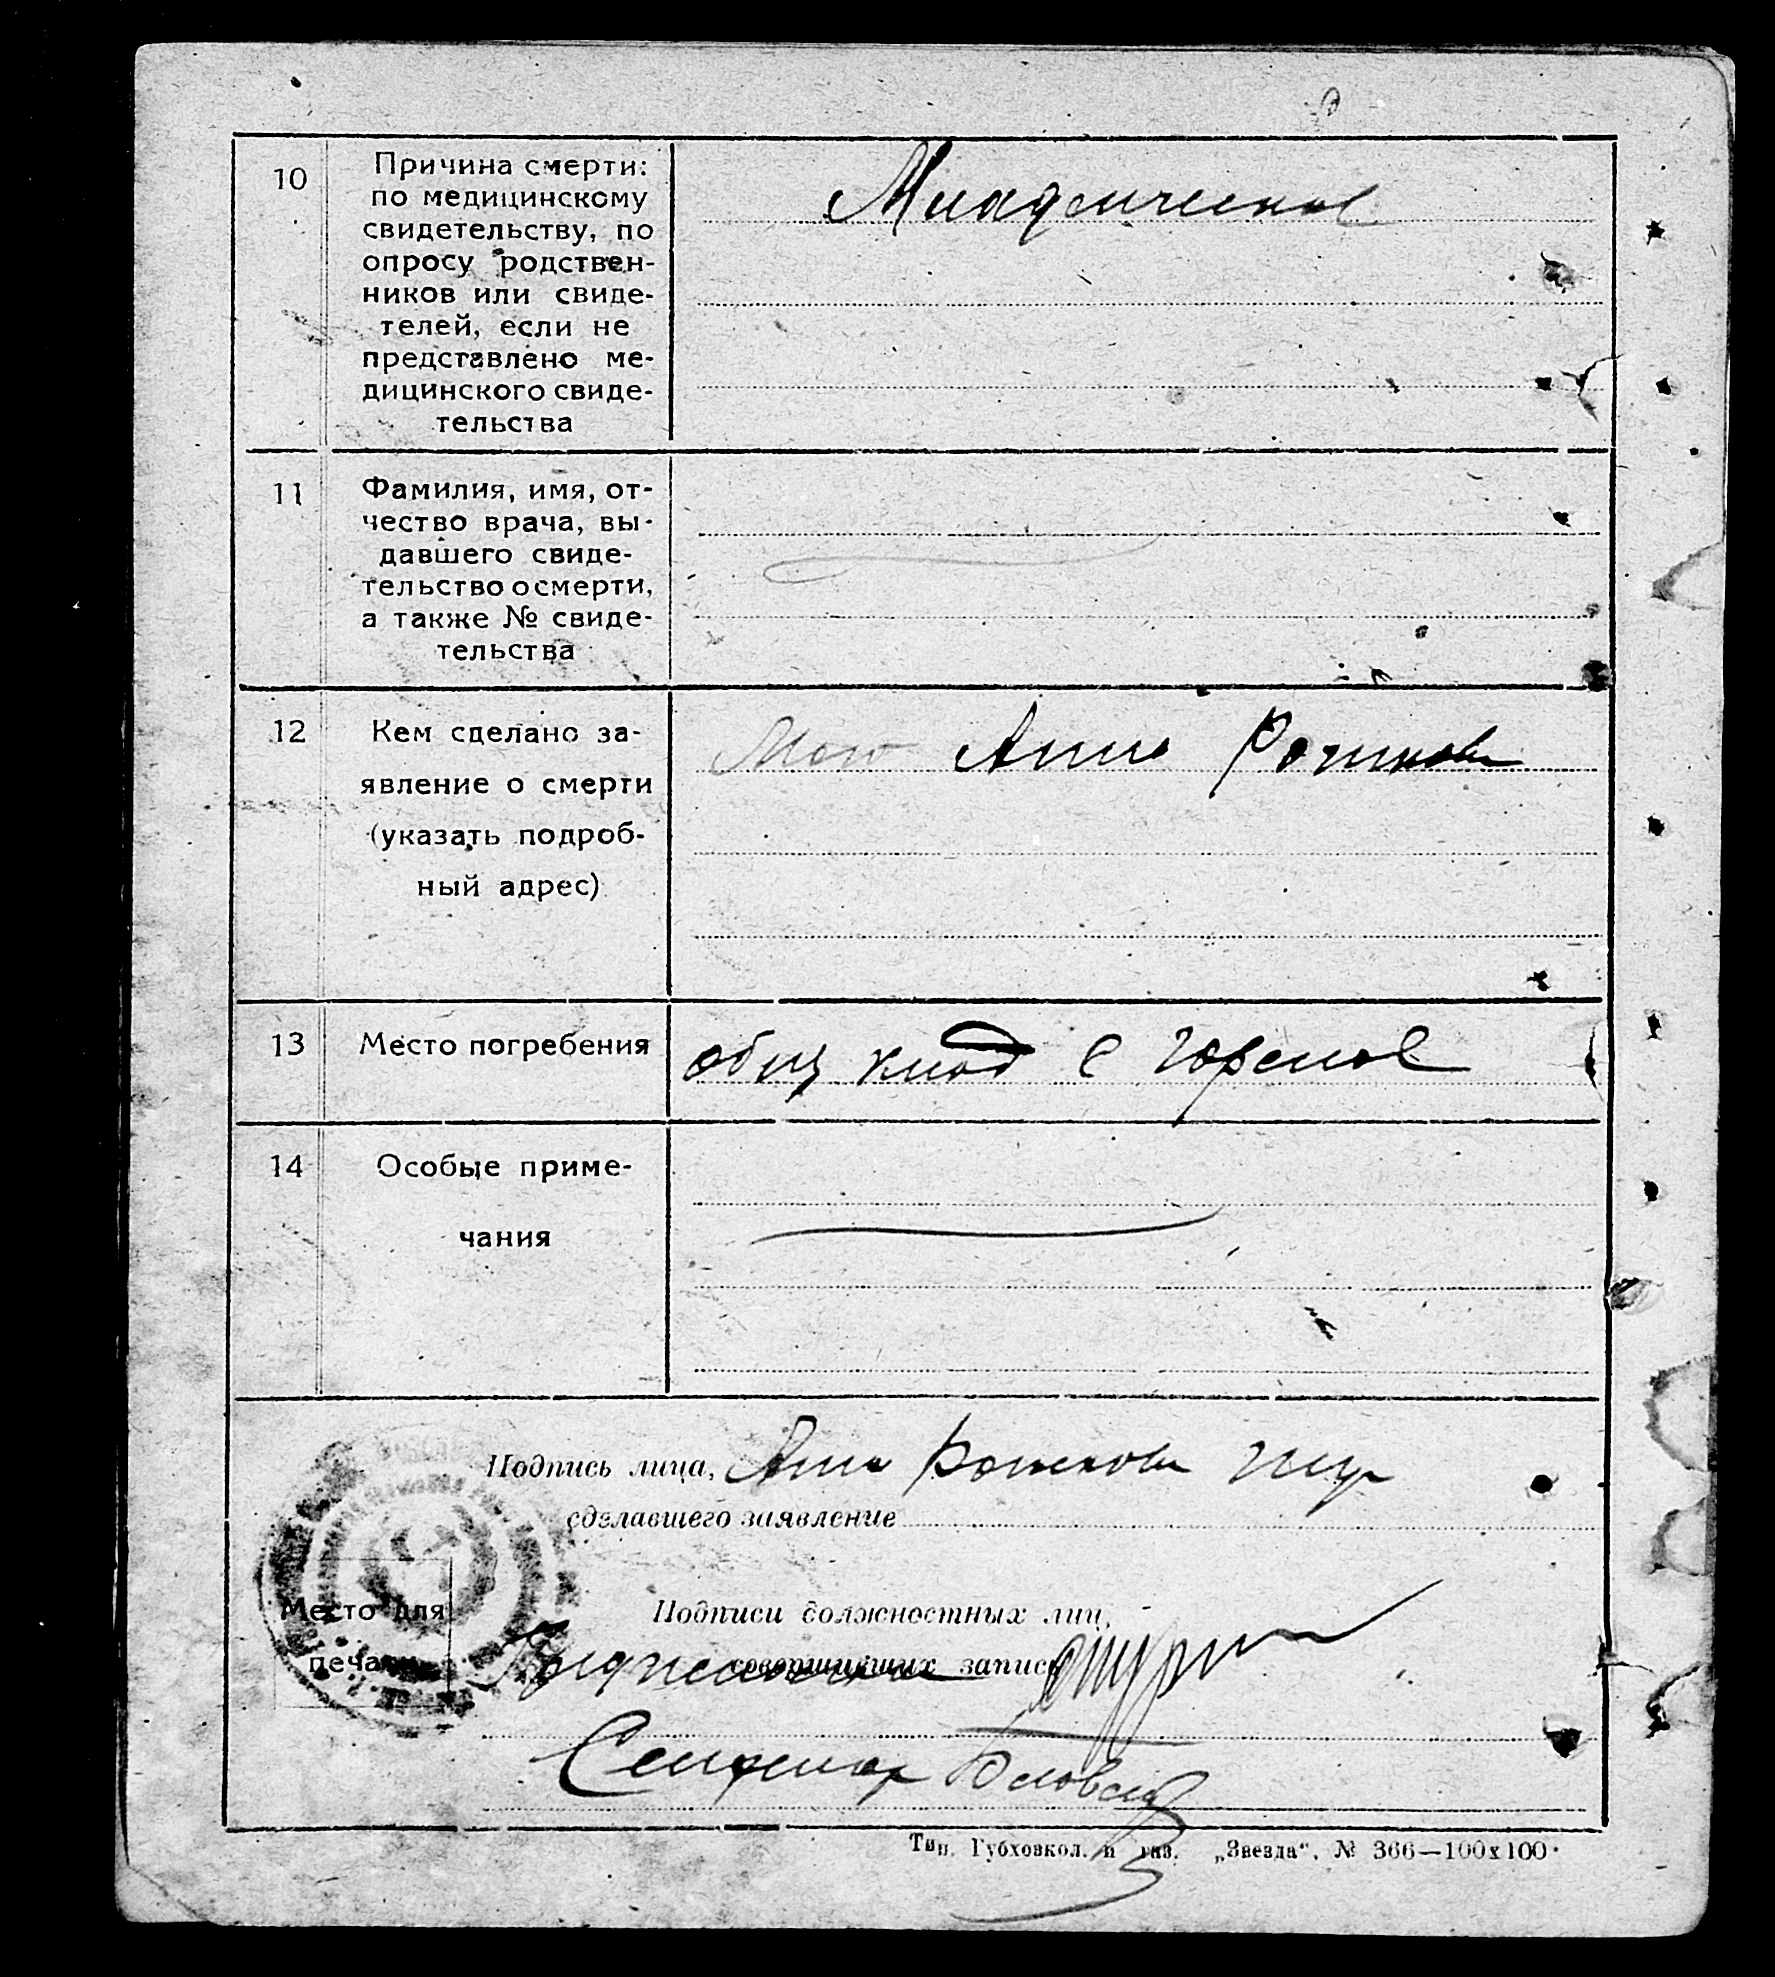 10
Причина смерти:
по медицинскому
свидетельству, по
опросу родствен-
ников или свиде-
телей, если не
представлено ме-
дицинского свиде-
тельства
Младенческое
11
Фамилия, имя, от-
чество врача, вы-
давшего свиде-
тельство о смерти,
а также № свиде-
тельства
12
Кем сделано за-
явление о смерти
(указать подроб-
ный адрес)
Анна
13
Место погребения
общ клад с
14
Особые приме-
чания
Подпись лица, Анна
сделавшего заявление
Место для
печати
Подписи должностных лиц,
совершивших запись
Тип. Губховкол. и газ. „Звезда“. № 366—100х100